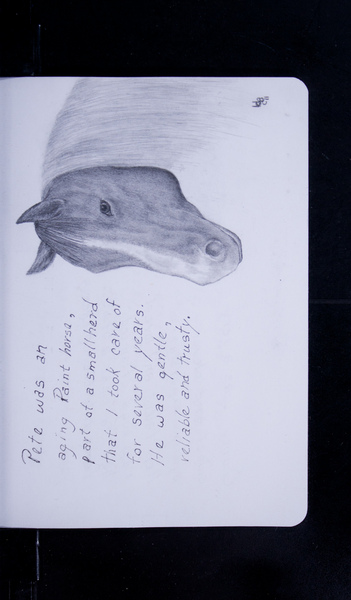 Pete was an
aging Paint horse,
part of a small herd
that I took care of
for several years.
He was gentle,
reliable and trusty.